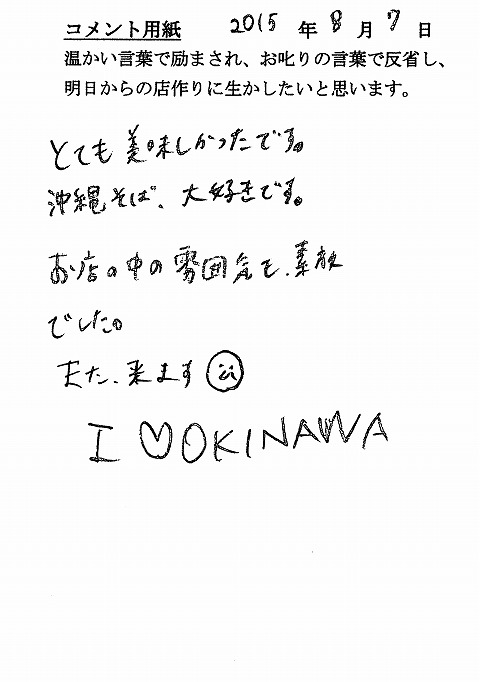 コメント用紙 2015 年 8 月 7 日
温かい言葉で励まされ、お叱りの言葉で反省し、
明日からの店作りに生かしたいと思います。
とても美味しかったです。
沖縄そば、大好きです。
お店の中の雰囲気も、素敵
でした。
また、来ます
I ♡ OKINAWA